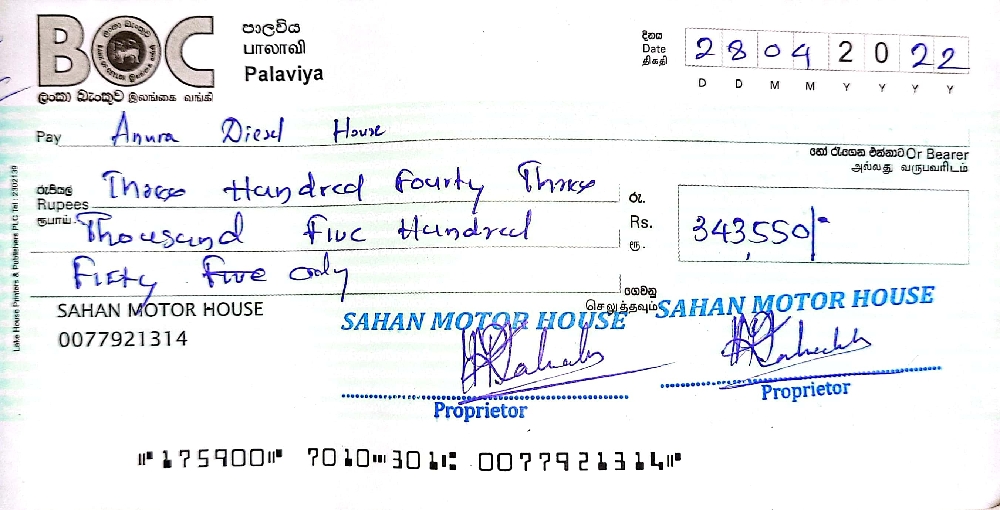 BOC
ලංකා බැංකුව இலங்கை வங்கி
පාලවිය
பாலாவி
Palaviya
දිනය
Date
திகதி
2 8 0 4 2 0 2 2
D D M M Y Y Y Y
Pay Anura Diesel House
හෝ රැගෙන එන්නාට Or Bearer
அல்லது வருபவரிடம்
රුපියල්
Rupees
ரூபாய்
Three Hundred Fourty Three
Thousand Five Hundred
Fifty Five only
රු.
Rs.
ரூ.
343,550/-
ගෙවනු
செலுத்தவும்
SAHAN MOTOR HOUSE
0077921314
SAHAN MOTOR HOUSE
Proprietor
SAHAN MOTOR HOUSE
Proprietor
Lake House Printers & Publishers PLC Tel : 2102139
⑈175900⑈ 7010⑉301⑆ 0077921314⑈